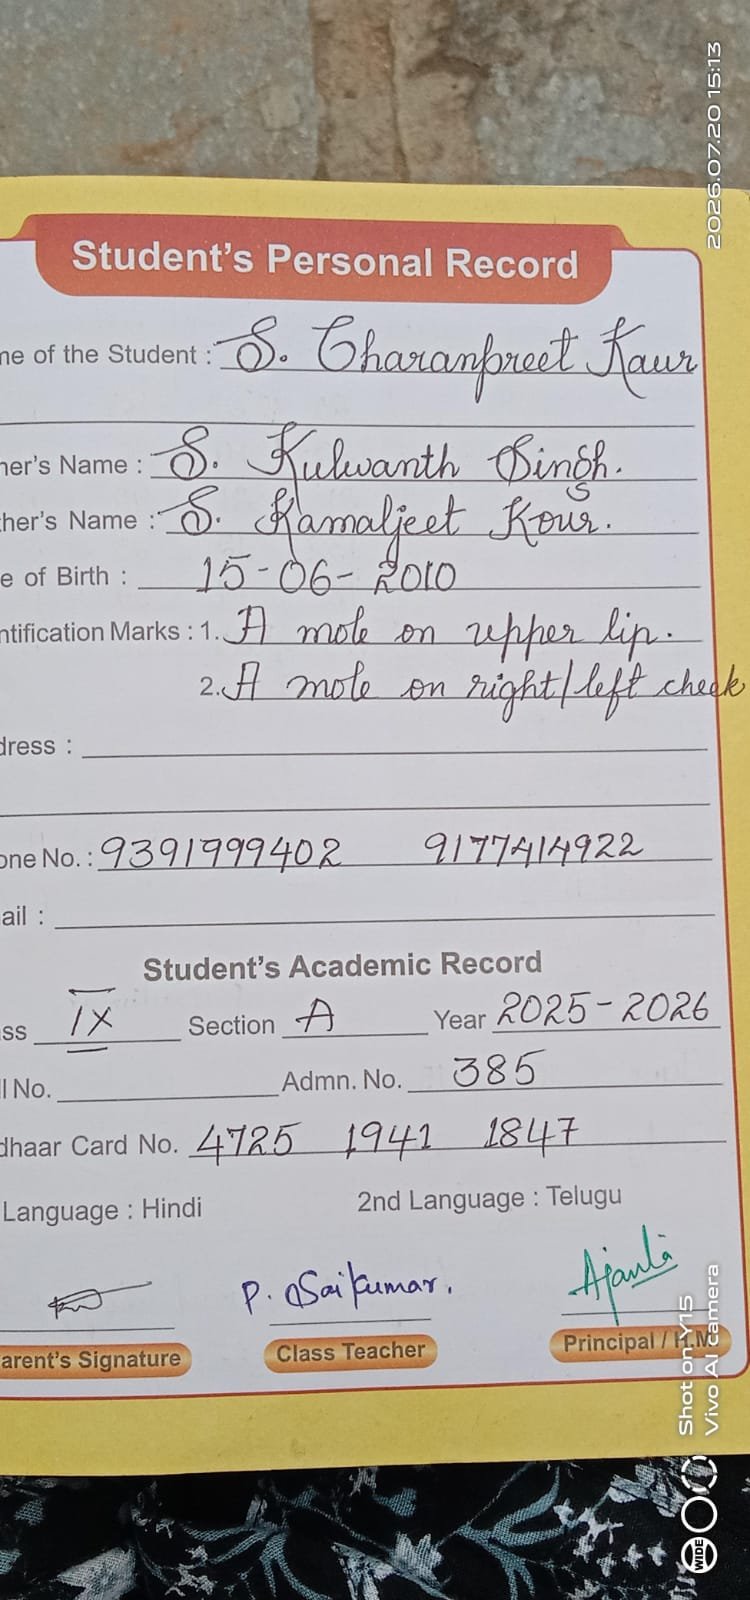 Student's Personal Record
me of the Student : S. Charanpreet Kaur
her's Name : S. Kulwanth Singh.
ther's Name : S. Kamaljeet Kour.
e of Birth : 15-06-2010
ntification Marks : 1. A mole on upper lip.
2. A mole on right/left cheek
dress :
one No. : 9391999402 9177414922
ail :
Student's Academic Record
ss IX Section A Year 2025-2026
l No. Admn. No. 385
dhaar Card No. 4725 1941 1847
Language : Hindi 2nd Language : Telugu
P. Sai Kumar.
arent's Signature Class Teacher Principal / H.M
2026.07.20 15:13
Shot on Y15
Vivo AI camera
WIDE